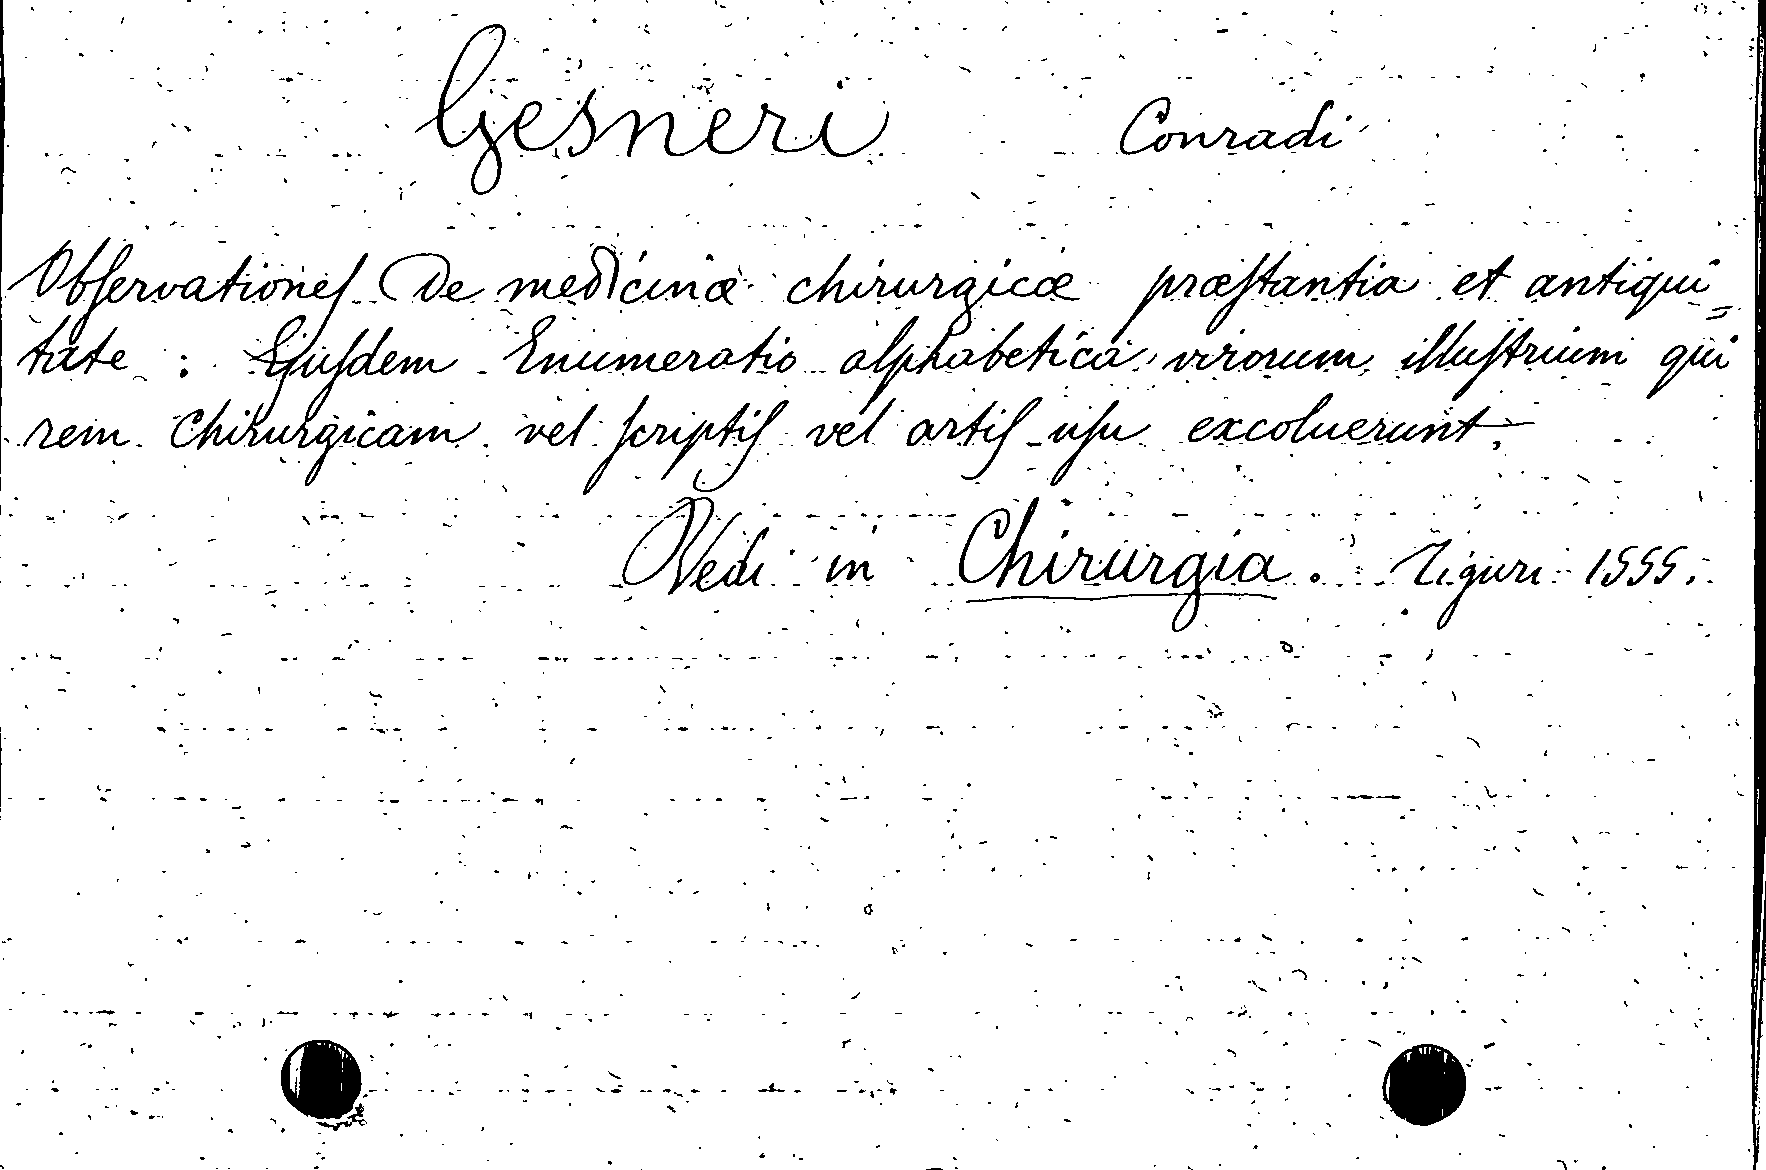 Gesneri Conradi
Obſervationeſ De medicinæ chirurgicæ præſtantia et antiqui=
tate : Ejuſdem Enumeratio alphabetica virorum illuſtrium qui
rem Chirurgicam vel ſcriptiſ vel artiſ uſu excoluerunt.
Vedi in Chirurgia. Tiguri 1555.